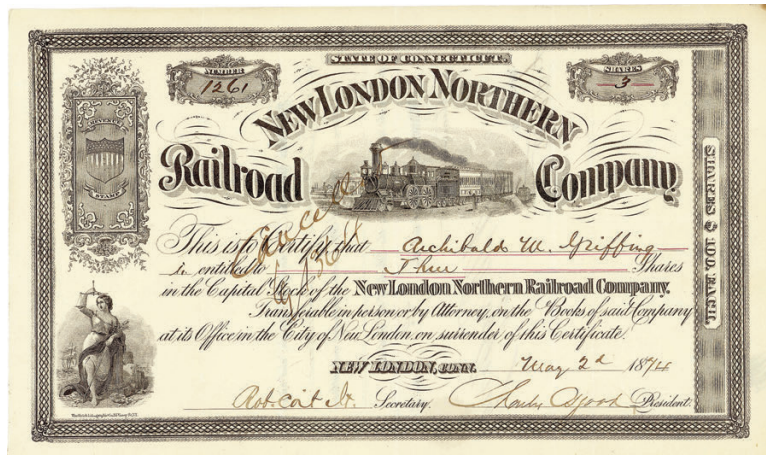 STATE OF CONNECTICUT.
NUMBER
1261
SHARES
3
NEW LONDON NORTHERN
Railroad Company
This is to Certify that Archibald M. Griffing
is entitled to Three Shares
in the Capital Stock of the New London Northern Railroad Company.
Transferable in person or by Attorney, on the Books of said Company
at its Office in the City of New London, on surrender of this Certificate.
NEW LONDON, CONN. May 2d 1874
Secretary. President.
SHARES $100. EACH.